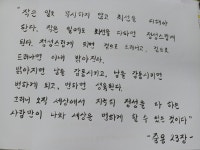 "작은 일도 무시하지 않고 최선을 다해야
한다. 작은 일에도 최선을 다하면 정성스럽게
된다. 정성스럽게 되면 겉에 배어 나오고, 겉으로
드러나면 이내 밝아진다.
밝아지면 남을 감동시키고, 남을 감동시키면
변하게 되고, 변하면 생육된다.
그러니 오직 세상에서 지극히 정성을 다 하는
사람만이 나와 세상을 변하게 할 수 있는 것이다"
-중용 23장-